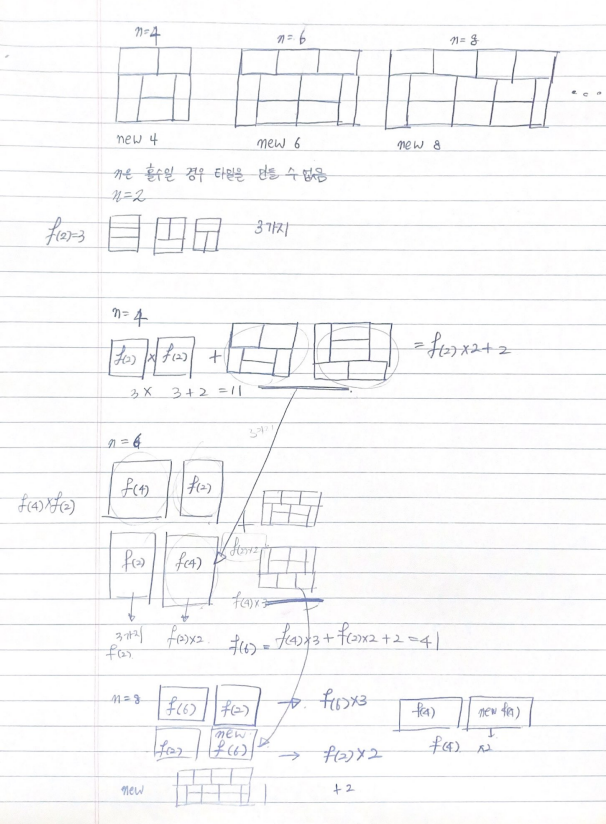 n=4 n=6 n=8
...
new 4 new 6 new 8
n은 홀수일 경우 타일을 만들 수 없음
n=2
f(2)=3 3가지
n=4
f(2) × f(2) + = f(2)×2+2
3 × 3+2 =11
n=6
f(4) f(2)
f(4)×f(2)
+
f(2) f(4) f(2)×2
f(4)×
3가지 f(2)×2
f(2)
f(6) = f(4)×3+f(2)×2+2=41
n=8 f(6) f(2) → f(6)×3
f(4) new f(4)
f(4) ×2
f(2) new f(6) → f(2)×2
new +2